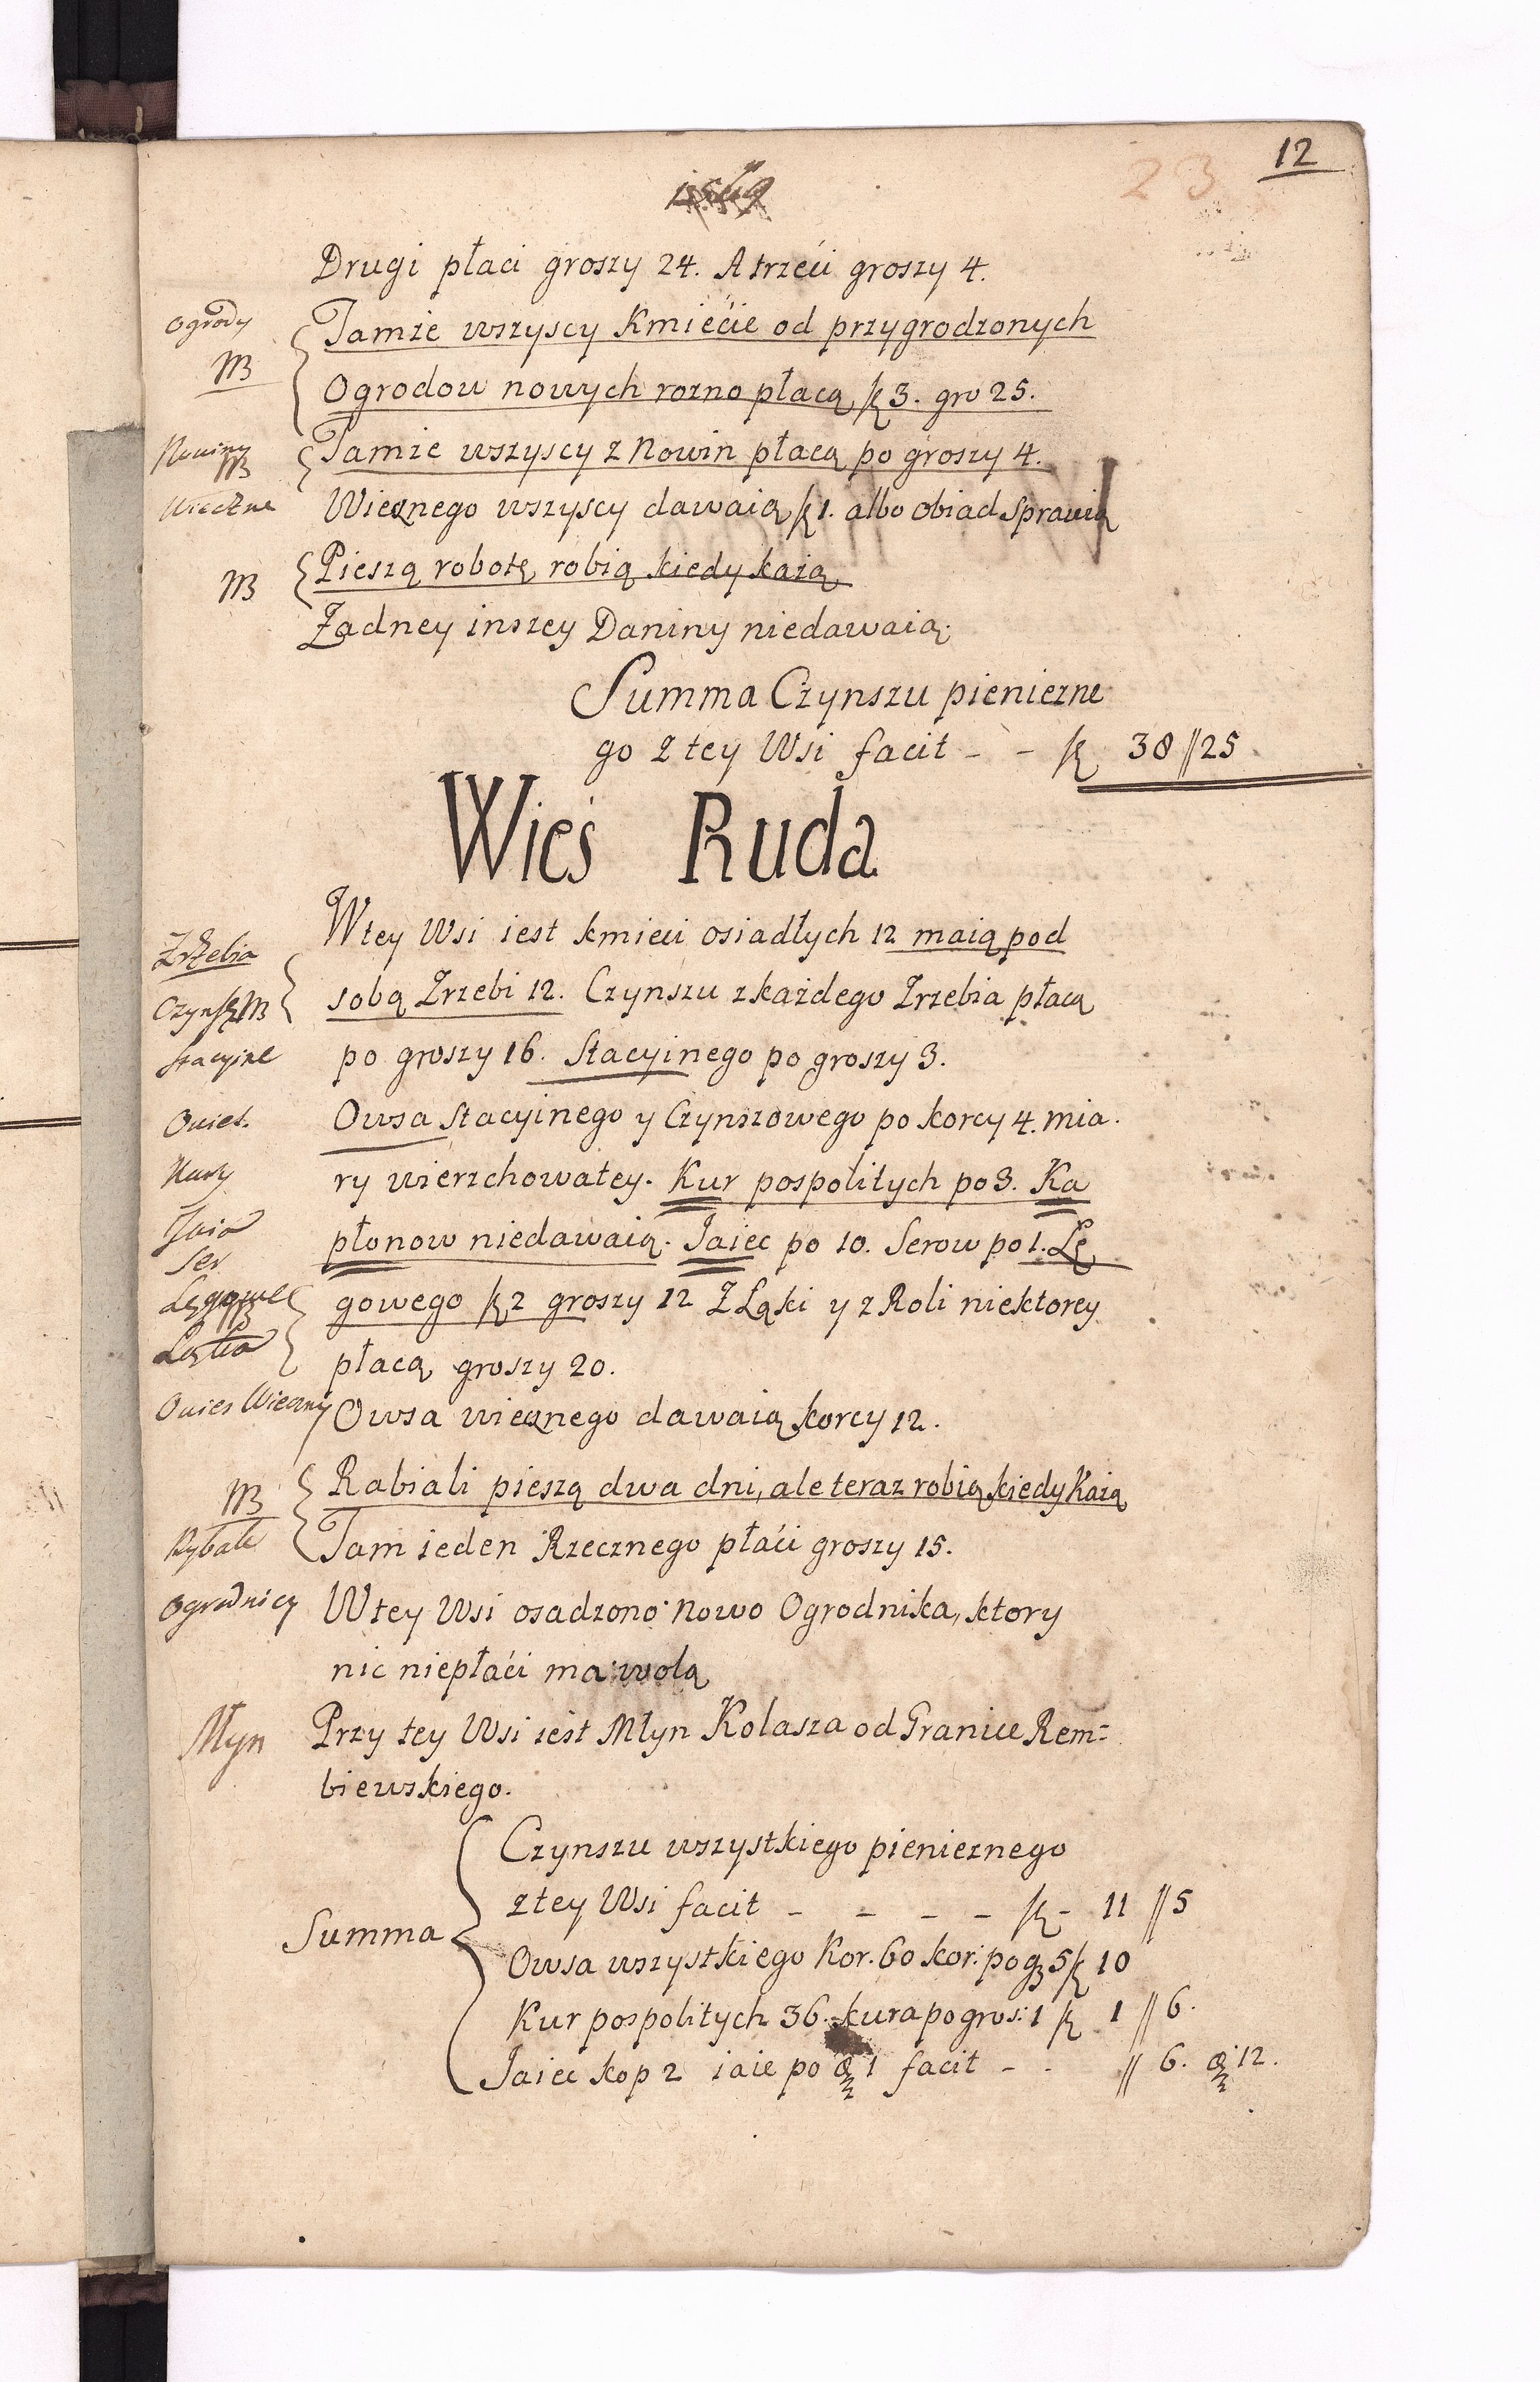 12
23
Drugi płaci groszy 24. A trzeci groszy 4.
Ogrody
Tamże wszyscy Kmiecie od przygrodzonych
NB
Ogrodow nowych rozno płacą ꝶ 3. gro 25.
Nowiny NB
Tamże wszyscy z Nowin płacą po groszy 4.
Wieczne
Wiecznego wszyscy dawaią ꝶ 1. albo obiad sprawią
NB
Pieszą robotę robią kiedy każą
Żadney inszey Daniny niedawaią.
Summa Czynszu pienięzne
go z tey Wsi facit - - ꝶ 38 // 25.
Wieś Ruda
W tey Wsi iest kmieci osiadłych 12 maią pod
Zrzebia
sobą Zrzebi 12. Czynszu z każdego Zrzebia płacą
Czynsz NB
Stacyine
po groszy 16. Stacyinego po groszy 3.
Owies.
Owsa Stacyinego y Czynszowego po korcy 4. mia.
Kury
ry wierzchowatey. Kur pospolitych po 3. Ka
Jaia
płonow niedawaią. Jaiec po 10. Serow po 1. Lę
Ser
Lęgowe NB
gowego ꝶ 2 groszy 12 Z Łąki y z Roli niektorey
Łąka
płacą groszy 20.
Owies Wieczny
Owsa wiecznego dawaią korcy 12.
NB
Rabiali pieszą dwa dni, ale teraz robią kiedy Każą
Rybak
Tam ieden Rzecznego płaći groszy 15.
Ogrodnicy
W tey Wsi osadzono nowo Ogrodnika, ktory
nic niepłaći ma wolą
Młyn
Przy tey Wsi iest Młyn Kolasza od Granice Rem=
biewskiego.
Czynszu wszystkiego pienieznego
z tey Wsi facit - - - - ꝶ - 11 // 5
Summa
Owsa wszystkiego Kor. 60 kor. po g 5 ꝶ 10
Kur pospolitych 36. kura po gros: 1 ꝶ 1 // 6.
Jaiec kop 2 iaie po 1 facit - - // 6. 12.